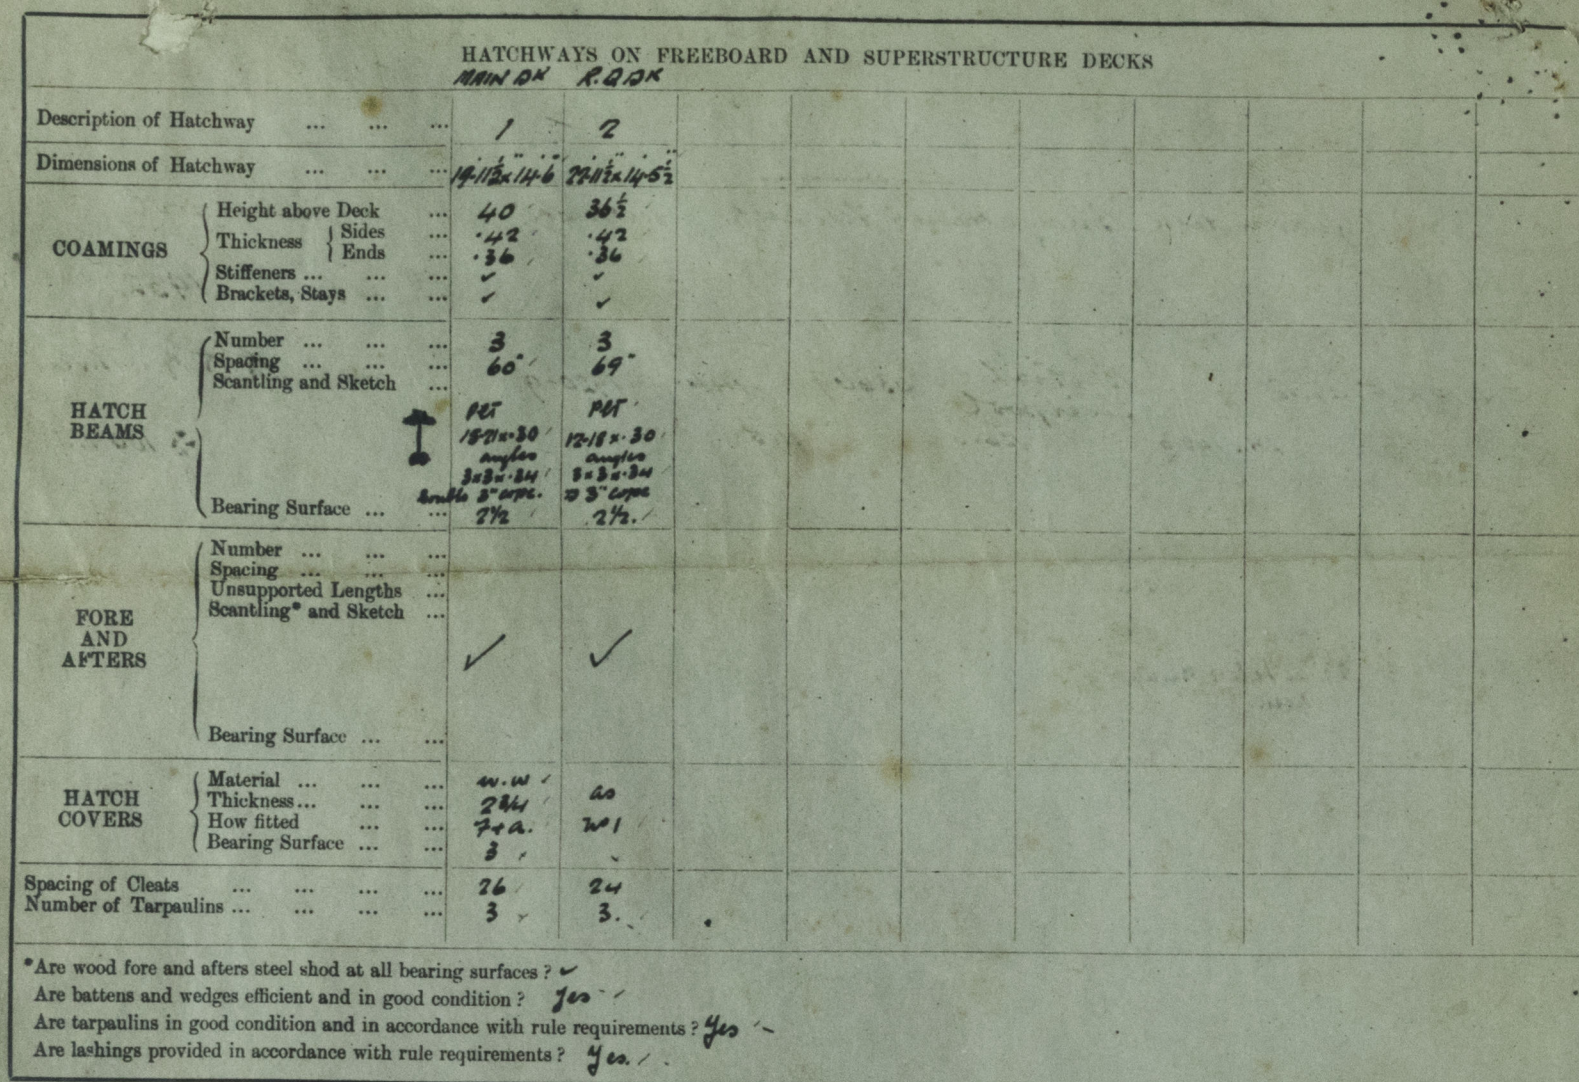 HATCHWAYS ON FREEBOARD AND SUPERSTRUCTURE DECKS
MAIN DK R.Q DK
Description of Hatchway ... ... ... 1 2
Dimensions of Hatchway ... ... ... 19'-11½" x 14'-6" 22'-11½" x 14'-5½"
COAMINGS
Height above Deck ... 40 36½
Thickness Sides ... .42 .42
Ends ... .36 .36
Stiffeners ... ... ... ✓ ✓
Brackets, Stays ... ... ✓ ✓
HATCH BEAMS
Number ... ... ... 3 3
Spacing ... ... ... 60" 69"
Scantling and Sketch ...
PLT PLT
18-21 x .30 12-18 x .30
angles angles
3x3x.34 3x3x.34
Double 3" cope. D 3" cope
Bearing Surface ... ... 2½ 2½.
FORE AND AFTERS
Number ... ... ...
Spacing ... ... ...
Unsupported Lengths ...
Scantling* and Sketch ...
✓ ✓
Bearing Surface ... ...
HATCH COVERS
Material ... ... ... w.w as
Thickness... ... ... 2¾
How fitted ... ... F+a. No 1
Bearing Surface ... ... 3
Spacing of Cleats ... ... ... ... 26 24
Number of Tarpaulins ... ... ... ... 3 3.
*Are wood fore and afters steel shod at all bearing surfaces ? ✓
Are battens and wedges efficient and in good condition ? Yes
Are tarpaulins in good condition and in accordance with rule requirements ? Yes
Are lashings provided in accordance with rule requirements ? Yes.